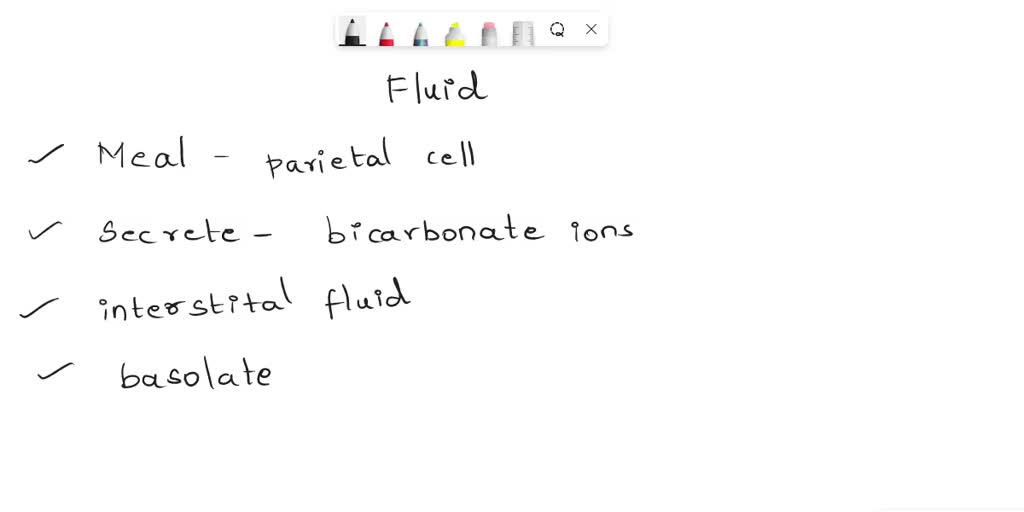 Fluid
Meal - parietal cell
Secrete - bicarbonate ions
interstital fluid
basolate